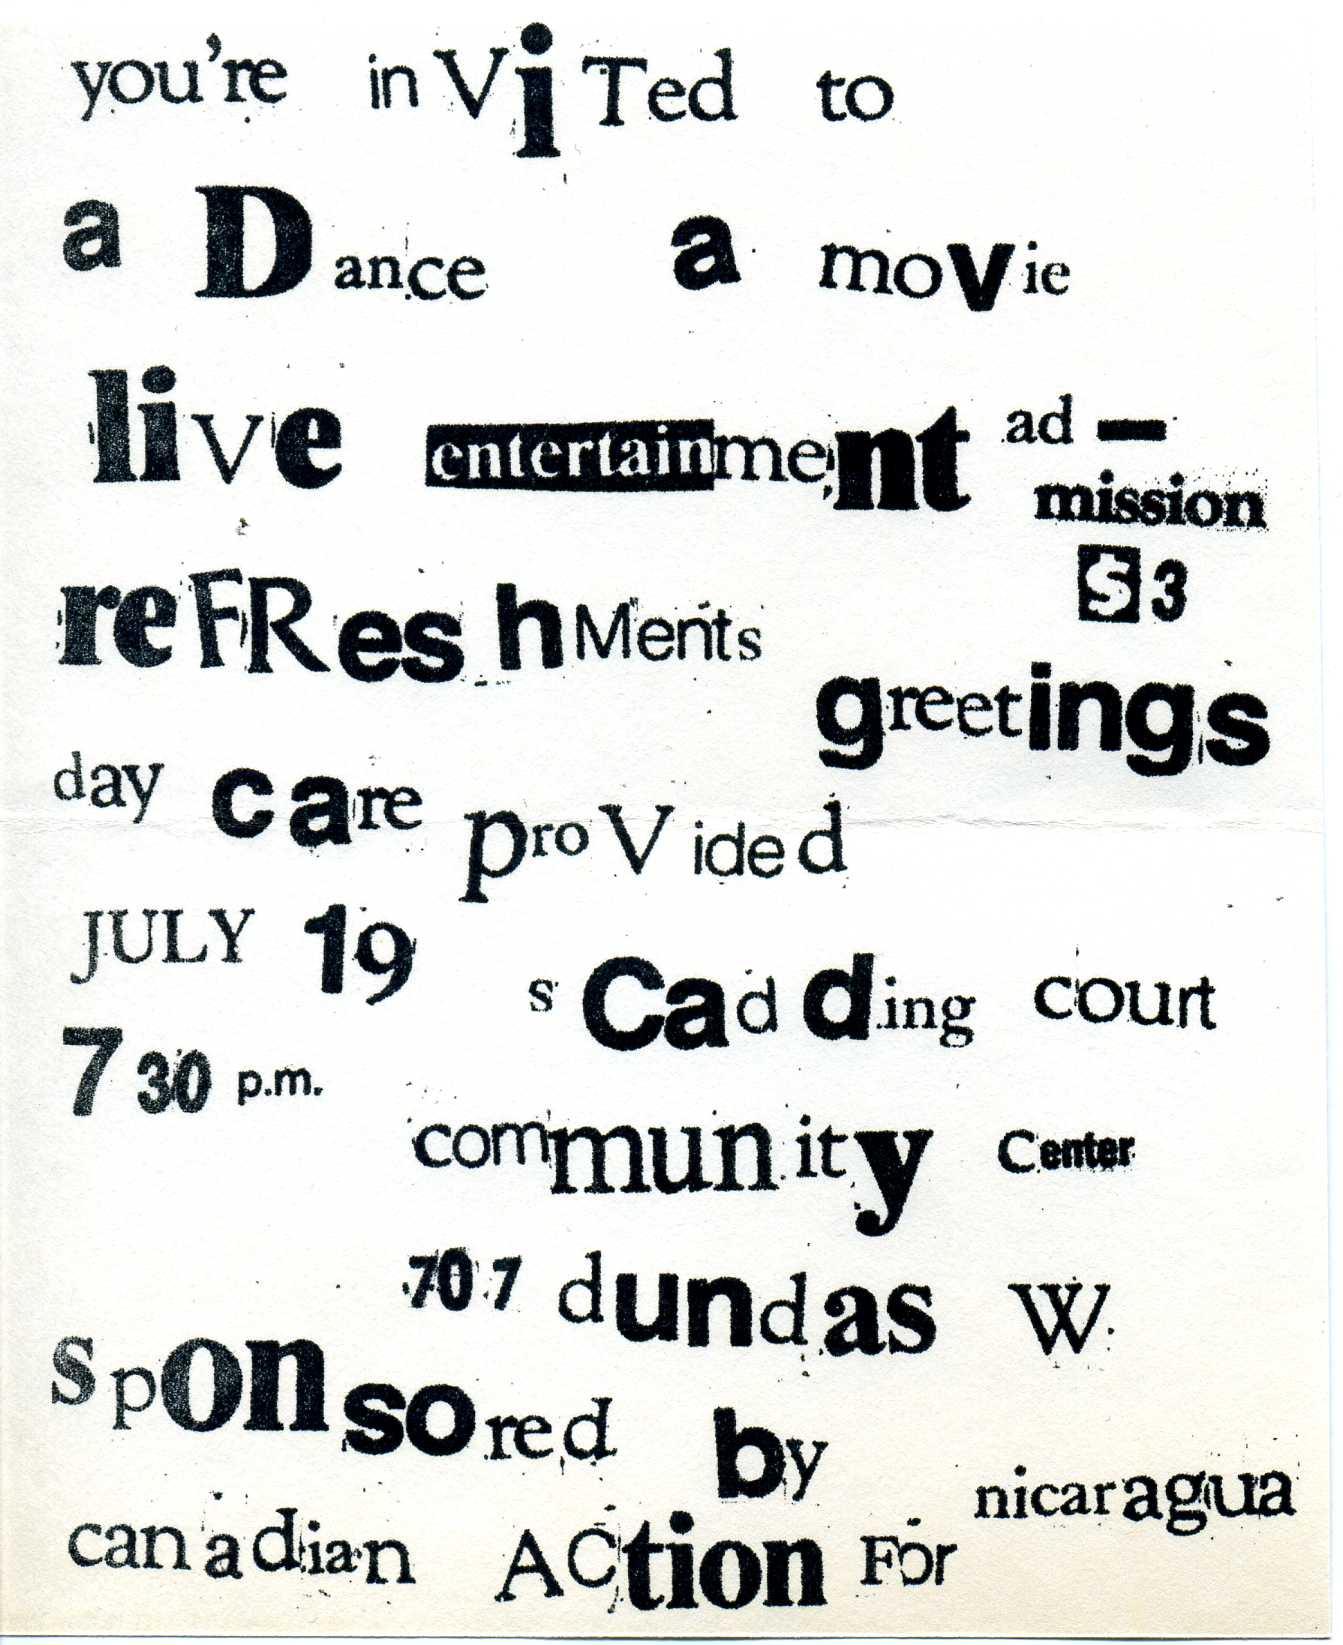 you're inViTed to
a Dance a movie
live entertainment ad-
mission
$3
reFReshMents
greetings
day care proVided
JULY 19
sCadding court
730 p.m.
community Center
707 dundas W.
sponsored by
nicaragua
canadian ACtion For